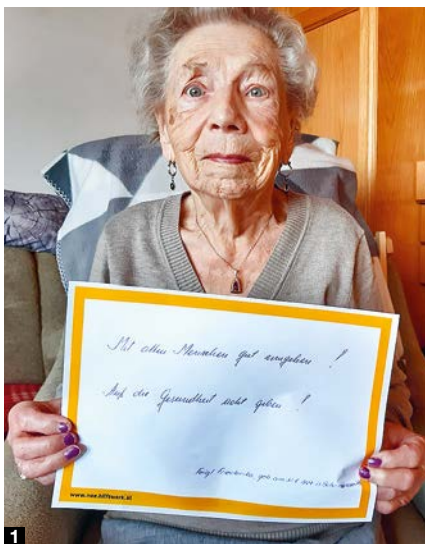 Mit allen Menschen gut umgehen !
Auf die Gesundheit acht geben !
www.noe.hilfswerk.at
1